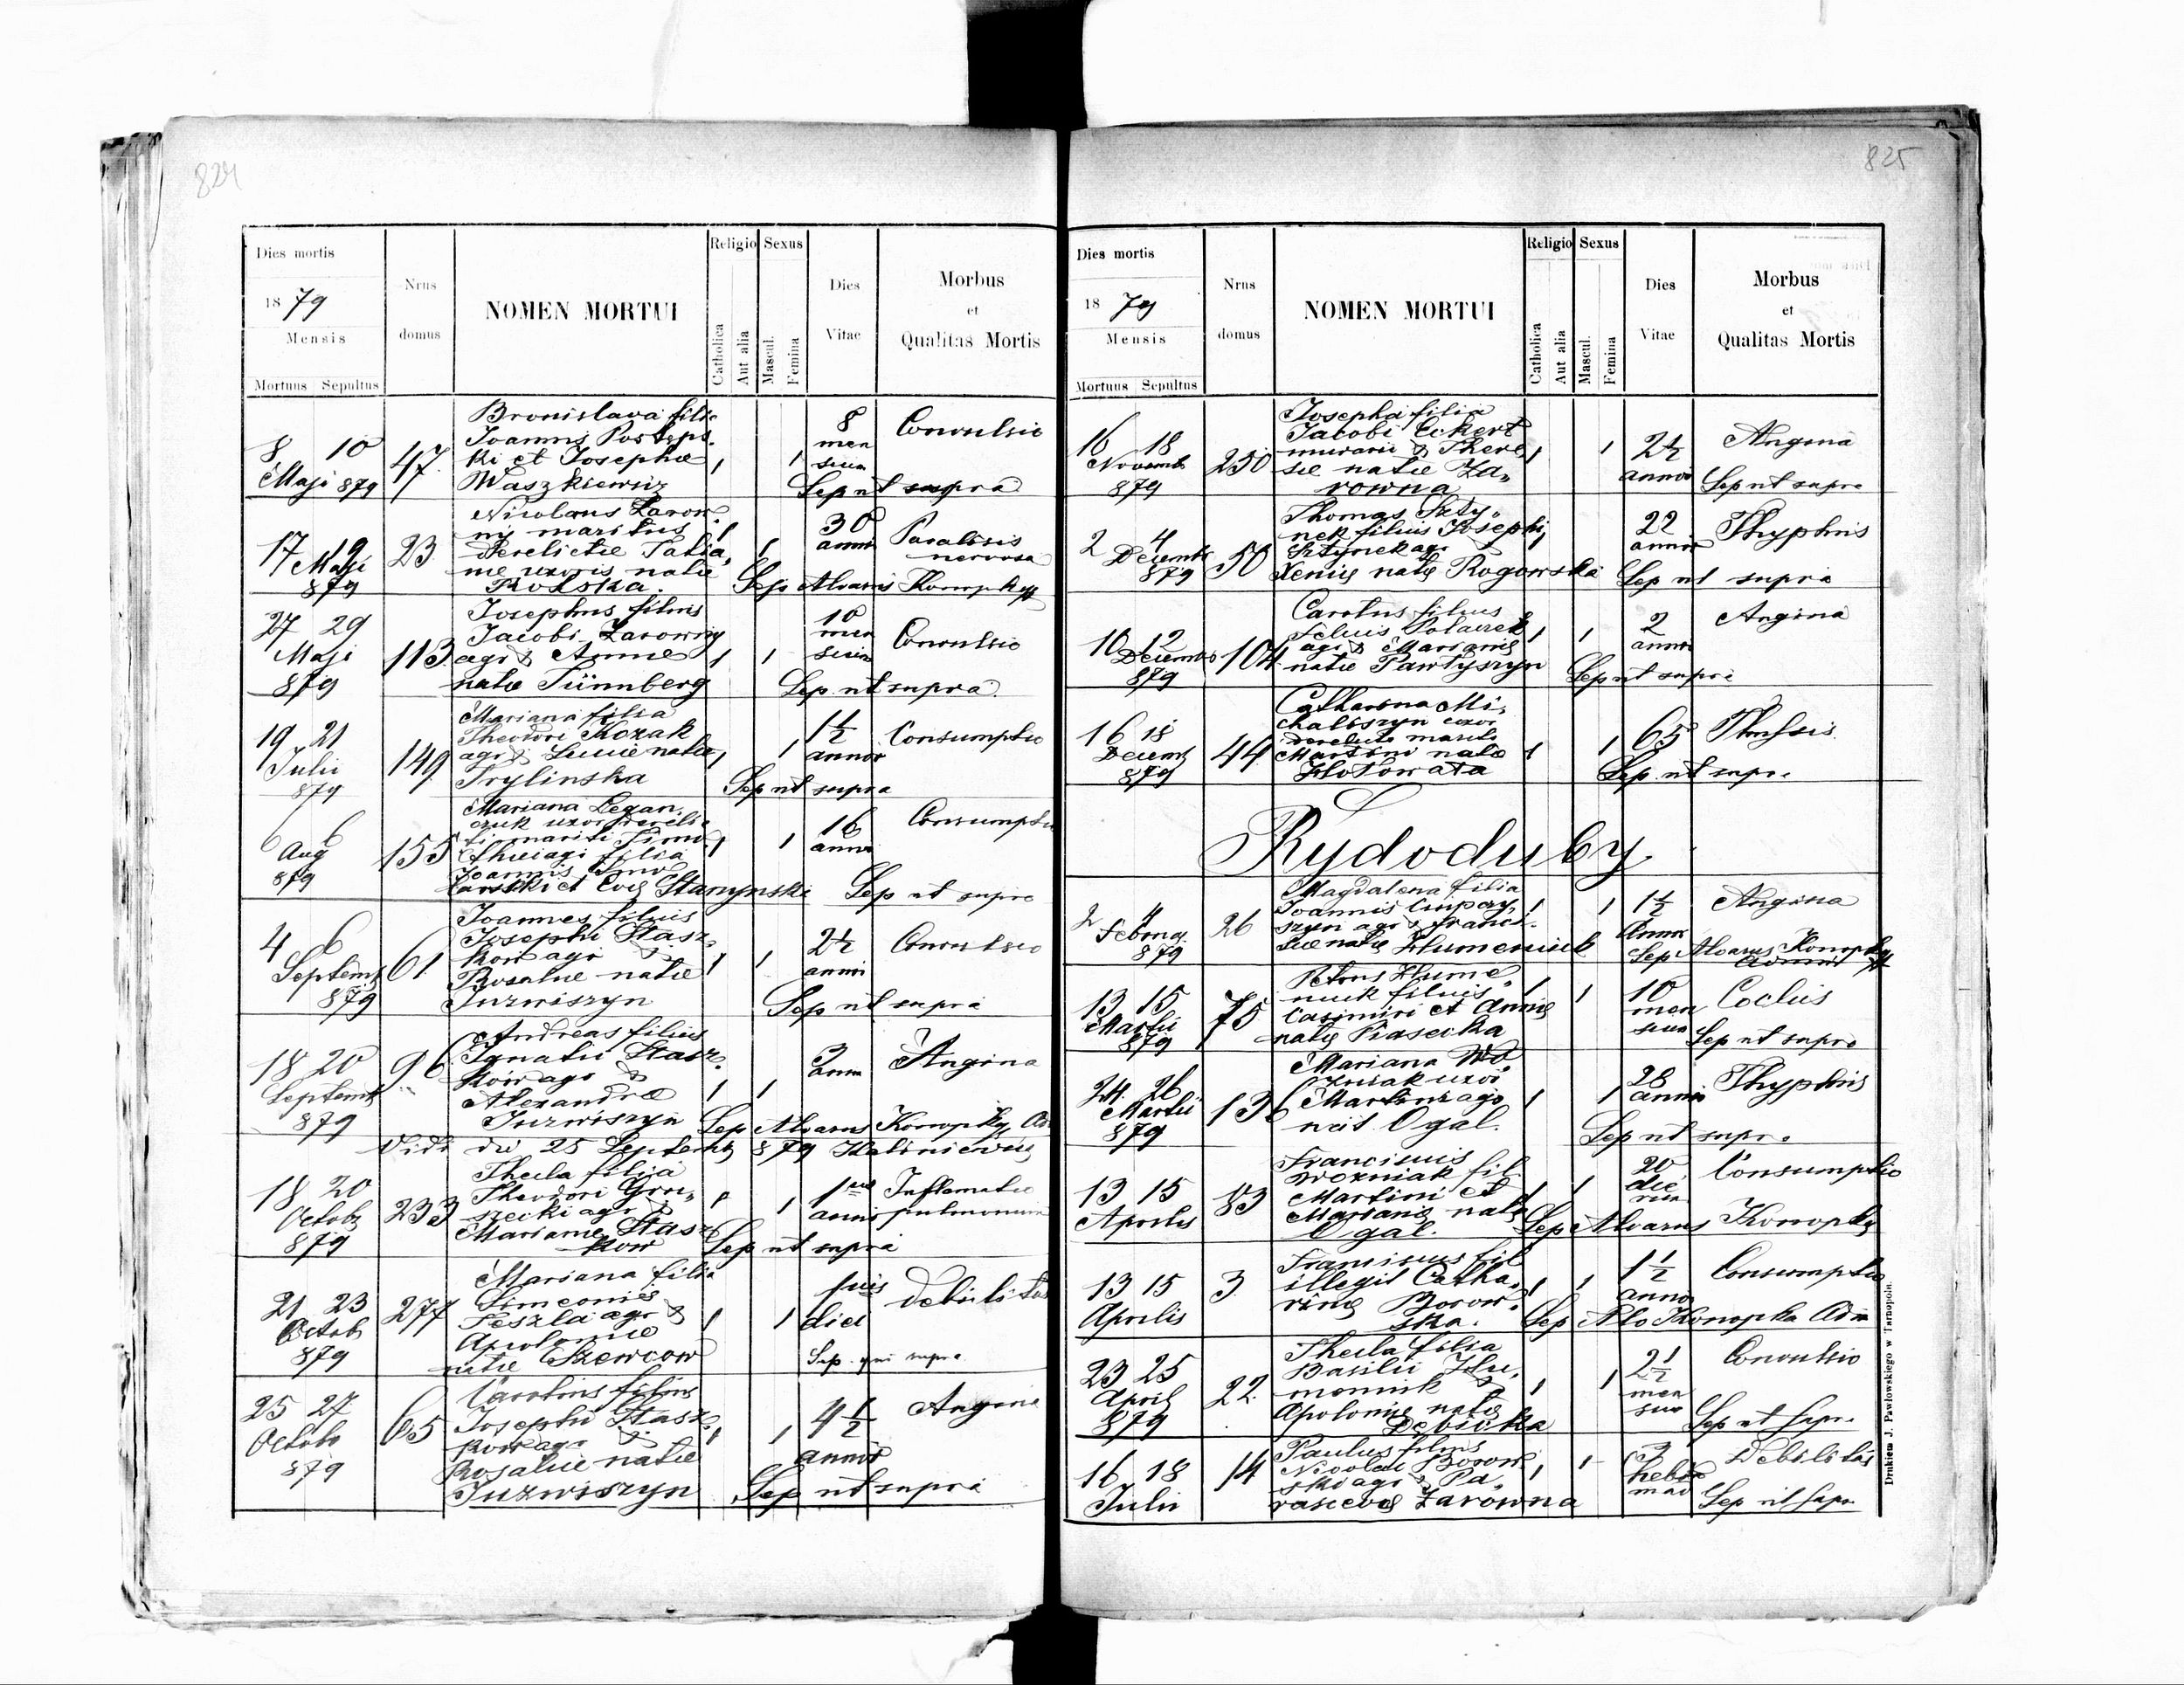 824
Dies mortis
1879
Mensis
Mortuus Sepultus
Nrus
domus
NOMEN MORTUI
Religio
Catholica
Aut alia
Sexus
Mascul.
Femina
Dies
Vitae
Morbus
et
Qualitas Mortis
8 10
Maji 879
47.
Bronislava filia
Joannis Postęps-
ki et Josephae
Waszkiewicz
1 1
8
men
sium
Convulsio
Sep ut supra
17 19
Maji
879
23
Nicolaus Zarow-
ny maritus
derelictae Tatia-
nae uxoris natae
1 1
30
anni
Paralisis
nervosa
Sep Alvarus Konopky
27 29
Maji
879
113
Josephus filius
Jacobi Zarowny
agr & Annae
natae Tünnberg
1 1
10
men
sium
Convulsio
Sep ut supra.
19 21
Julii
879
149
Mariana filia
Theodori Kozak
agr & Luciae natae
Trylinska
1 1
1½
annor
Consumptio
Sep ut supra
6 6
Aug
879
155
Mariana
czuk uxor derelic-
ti mariti Timo-
thei agr filia
Joannis
et Evae Stanynski
1 1
16
annor
Consumptio
Sep ut supra
4 6
Septemb
879
61
Joannes filius
Josephi Stasz-
kow agr &
Rosaliae natae
Juzwiszyn
1 1
2½
anni
Convulsio
Sep ut supra
18 20
Septemb
879
96
Andreas filius
Ignatii Stasz-
kow agr &
Alexandrae
Juzwiszyn
1 1
3
anni
Angina
Sep Alvarus Konopky
Vidi die 25 Septemb 879 Kaliniewicz
18 20
Octobr
879
233
Thecla filia
Theodori Gru-
szecki agr &
Marianae Stasz-
kow
1
1
anni
Inflamatio
pulmonum
Sep ut supra
21 23
Octob
879
277
Mariana filia
Simeonis
Teszla agr &
Apoloniae
natae Szewcow
1 1
diei
Debilitas
Sep. qui supra
25 27
Octobr
879
65
Carolus filius
Josephi Stasz-
kow agr &
Rosaliae natae
Juzwiszyn
1 1
4½
annor
Angina
Sep ut supra
825
Dies mortis
1879
Mensis
Mortuus Sepultus
Nrus
domus
NOMEN MORTUI
Religio
Catholica
Aut alia
Sexus
Mascul.
Femina
Dies
Vitae
Morbus
et
Qualitas Mortis
16 18
Novemb
879
250
Josepha filia
Jacobi Eckert
murarii & There-
siae natae Za-
rowna
1 1
2½
annor
Angina
Sep ut supra
2 4
Decemb
879
50
Thomas Szty-
nek filius Josephi
Sztynek agr
Xeniae natae Rogowska
1
22
annor
Thyphus
Sep ut supra
10 12
Decemb
879
104
Carolus filius
Polaczek
agr & Marianae
natae Pawlyszyn
1 1
2
annor
Angina
Sep ut supra
16 18
Decemb
879
44
Catharina Mi-
chalczszyn uxor
derelicto marito
Martini natae
Hołowata
1 1
65
Sep ut supr.
Rydoduby
2 4
Februa
879
26
Magdalena filia
Joannis
szyn agr & Franci-
scae natae Humeniuk
1 1
1½
Annor
Angina
Sep Alvarus Konopky
13 15
Martii
879
75
Petrus Hume-
niuk filius
Casimiri et Annae
natae Piasecka
1 1
10
men
sium
Coclus
Sep ut supra
24 26
Martii
879
136
Mariana Wo-
zniak uxor
Martini agr
nat. Ogal.
1 1
28
annor
Thyphus
Sep ut supr.
13 15
Aprilis
83
Franciscus
Wozniak fil
Martini et
Marianae natae
Ogal.
1 1
20
die
rum
Consumptio
Sep Alvarus Konopky
13 15
Aprilis
3
Franciscus fil
illegit Catha-
rinae Borow-
ska.
1 1
1½
annor
Consumptio
Sep Alv Konopka Adm
23 25
April
879
22.
Thecla filia
Basilii Hu-
meniuk &
Apoloniae natae
Debicka
1 1
2½
men
sium
Convulsio
Sep ut supr.
16 18
Julii
14
Paulus filius
Nicolai Borow-
ski agr & Pa-
rascevae Zarowna
1 1
3
hebdo
mad
Debilitas
Sep ut supr
Drukiem J. Pawłowskiego w Tarnopolu.